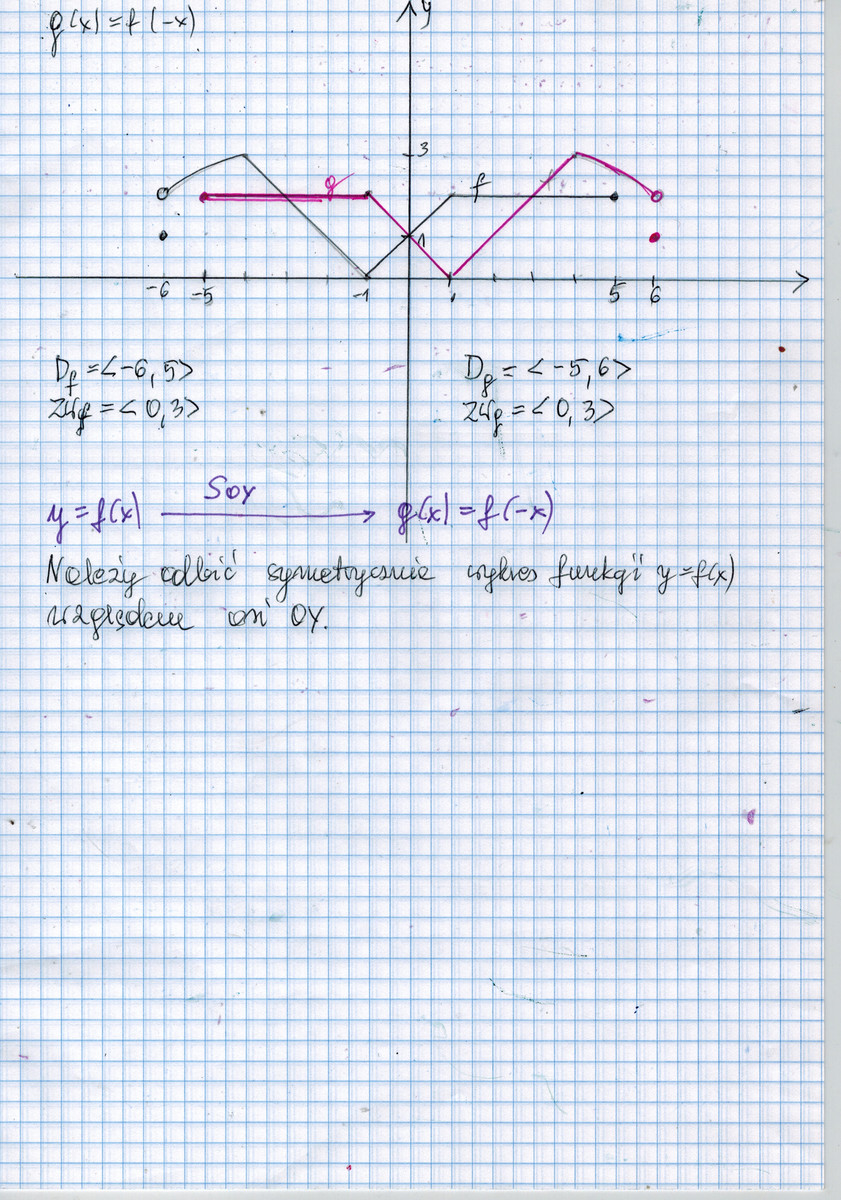 g(x) = f(-x)
y
3
g
f
1
-6 -5 -1 1 5 6
D_f = <-6, 5> D_g = <-5, 6>
ZW_f = <0, 3> ZW_g = <0, 3>
S_OY
y = f(x) → g(x) = f(-x)
Należy odbić symetrycznie wykres funkcji y = f(x)
względem osi OY.